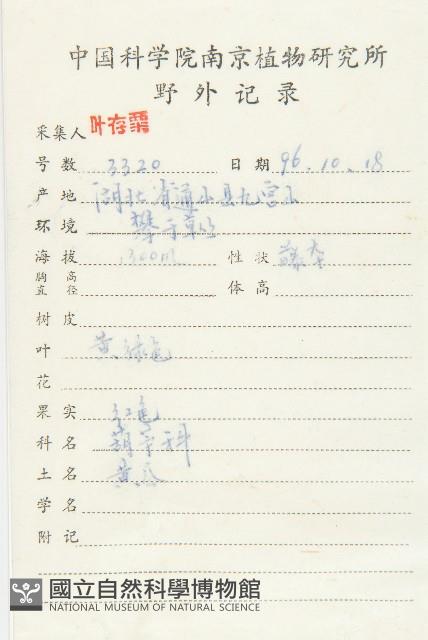 中国科学院南京植物研究所
野外记录
采集人 叶存粟
号数 3320 日期 96.10.18
产地 湖北省通山县九宫山
环境 攀于草丛
海拔 1300m 性状 藤本
胸高直径 体高
树皮
叶 黄绿色
花
果实 红色
科名 葫芦科
土名 黄瓜
学名
附记
國立自然科學博物館
NATIONAL MUSEUM OF NATURAL SCIENCE